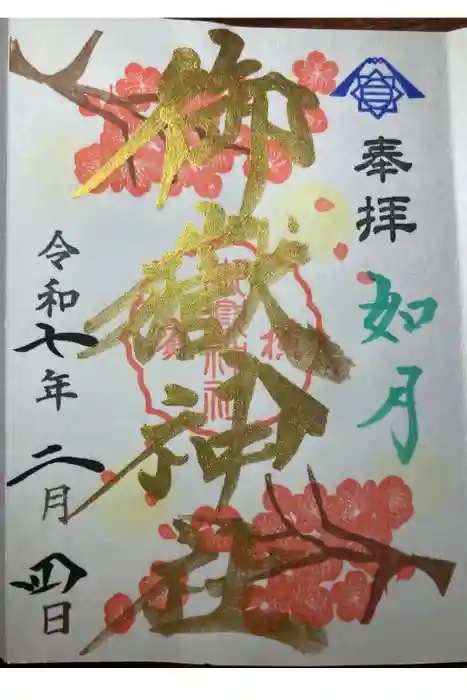 奉拝
如月
御嶽神社
令和七年二月四日